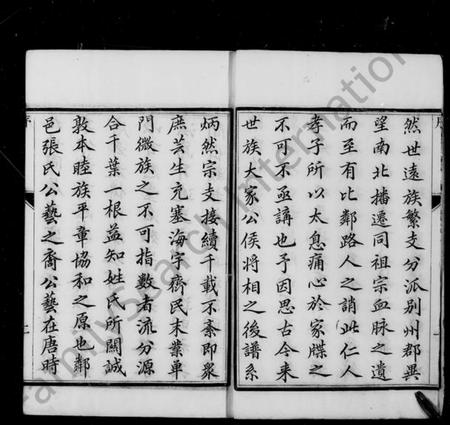 序
然世遠族繁支分派别州郡異
望南北播遷同祖宗血脉之遺
而至有比鄰路人之誚此仁人
孝子所以太息痛心於家牒之
不可不亟講也予因思古今來
世族大家公侯將相之後譜系
炳然宗支接續千載不紊即衆
庶芸生充塞海宇齊民末業單
門微族之不可指數者流分源
合千葉一根益知姓氏所關誠
敦本睦族平章協和之原也鄰
邑張氏公藝之裔公藝在唐時
序
二
FamilySearch International